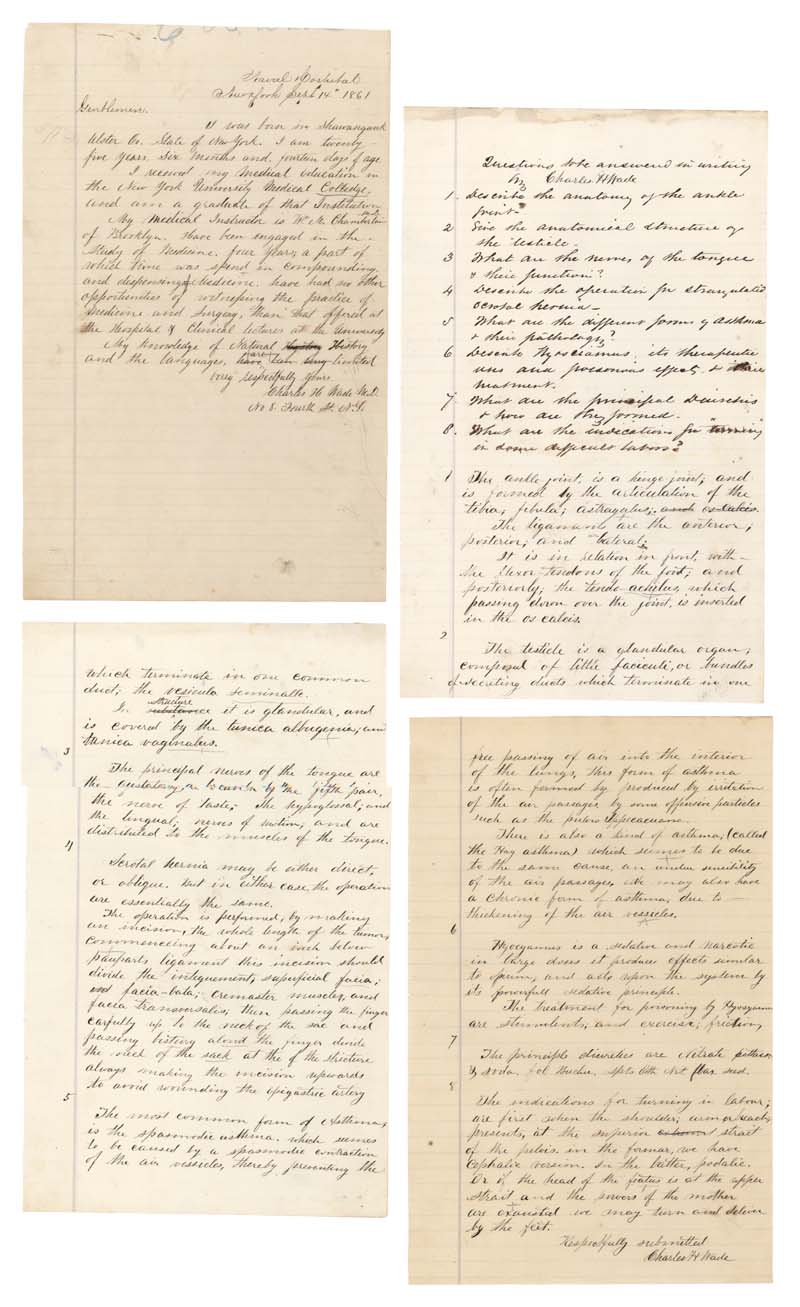 Naval Hospital
New York Sept 14th 1861
Gentlemen.
I was born in Shawangunk
Ulster Co. State of New York. I am twenty
five years, six months and fourteen days of age.
I received my medical education in
the New York University Medical Colledge,
and am a graduate of that Institution
My Medical Instructor is W. M. Chamberlain M.D.
of Brooklyn. Have been engaged in the
Study of Medicine four years, a part of
which time was spend in compounding,
and dispensing Medicine. have had no other
opportunities of witnessing the practice of
Medicine and Surgery, than that offered at
the Hospital & Clinical lectures at the University
My knowledge of Natural History
and the languages, are limited
very respectfully yours
Charles H. Wade M.D.
No 8. Fourth St. N.Y.
Questions to be answered in writing
by Charles H Wade
1. Describe the anatomy of the ankle
joint.
2 Give the anatomical structure of
the testicle.
3 What are the nerves of the tongue
& their function?
4 Describe the operation for strangulated
scrotal hernia
5 What are the different forms of Asthma
& their pathology?
6 Describe Hyosciamus, its therapeutic
uses and poisonous effects, &
treatment.
7 What are the principal Diuretics
& how are they formed.
8. What are the indications for "turning"
in some difficult labors?
1 The ankle joint, is a hinge joint, and
is formed by the articulation of the
tibia, fibula, astragalus, and os calcis.
The ligaments are the anterior,
posterior, and lateral.
It is in relation in front, with
the flexor tendons of the foot; and
posteriorly, the tendo achilus, which
passing down over the joint, is inserted
in the os calcis.
2
The testicle is a glandular organ,
composed of little faciculi, or bundles
of secreting ducts which terminate in one
which terminate in one common
duct, the vesicula seminalle.
In structure it is glandular, and
is covered by the tunica albugenia, and
tunica vaginalus.
3
The principal nerves of the tongue are
the gustatory, a branch of the "fifth" pair,
the nerve of taste, The hypoglossal, and
the lingual, nerves of motion, and are
distributed to the muscles of the tongue.
4
Scrotal hernia may be either direct,
or oblique. but in either case, the operation
are essentially the same.
The operation is performed, by making
an incision, the whole length of the tumor,
commenceing about an inch below
pauparts ligament this incision should
divide the intiguement, superficial facia,
facia-lata, Cremaster muscles, and
facia transversalis, then passing the finger
carfully up to the neck of the sac and
passing bistiry alond the finger divide
the neck of the sack at the of the stricture
always making the incision upwards
to avoid wounding the epigastric artery
5
The most common form of Asthma,
is the spasmodic asthma. which seemes
to be caused by a spasmodic contraction
of the air vessicles, thereby preventing the
free passing of air into the interior
of the lungs, this form of asthma
is often formed by produced by irritation
of the air passages by some offensive particles
such as the pulvis Ippicacuana.
There is also a kind of asthma, (called
the Hay asthma) which seemes to be due
to the same cause, an undue sencibility
of the air passages, we may also have
a chronic form of asthma, due to
thickening of the air vessicles.
6
Hyocyamus is a sedative and narcotic
in large doses it produce effects similar
to opium, and acts upon the system by
its powerfull sedative principle.
The treatment for poisoning by Hyosyamus
are stemulents, and exercise, friction,
7
The principle diuretics are Nitrate
& soda. fol Buchu. Spts Eth Nit flax seed.
8
The indications for turning in labour,
are first when the shoulder,
presents, at the superior strait
of the pelvis. in the former, we have
cephalic version. In the latter, podalic.
Or if the head of the foetus is at the upper
strait and the powers of the mother
are exausted we may turn and deliver
by the feet.
Respectfully submitted
Charles H Wade